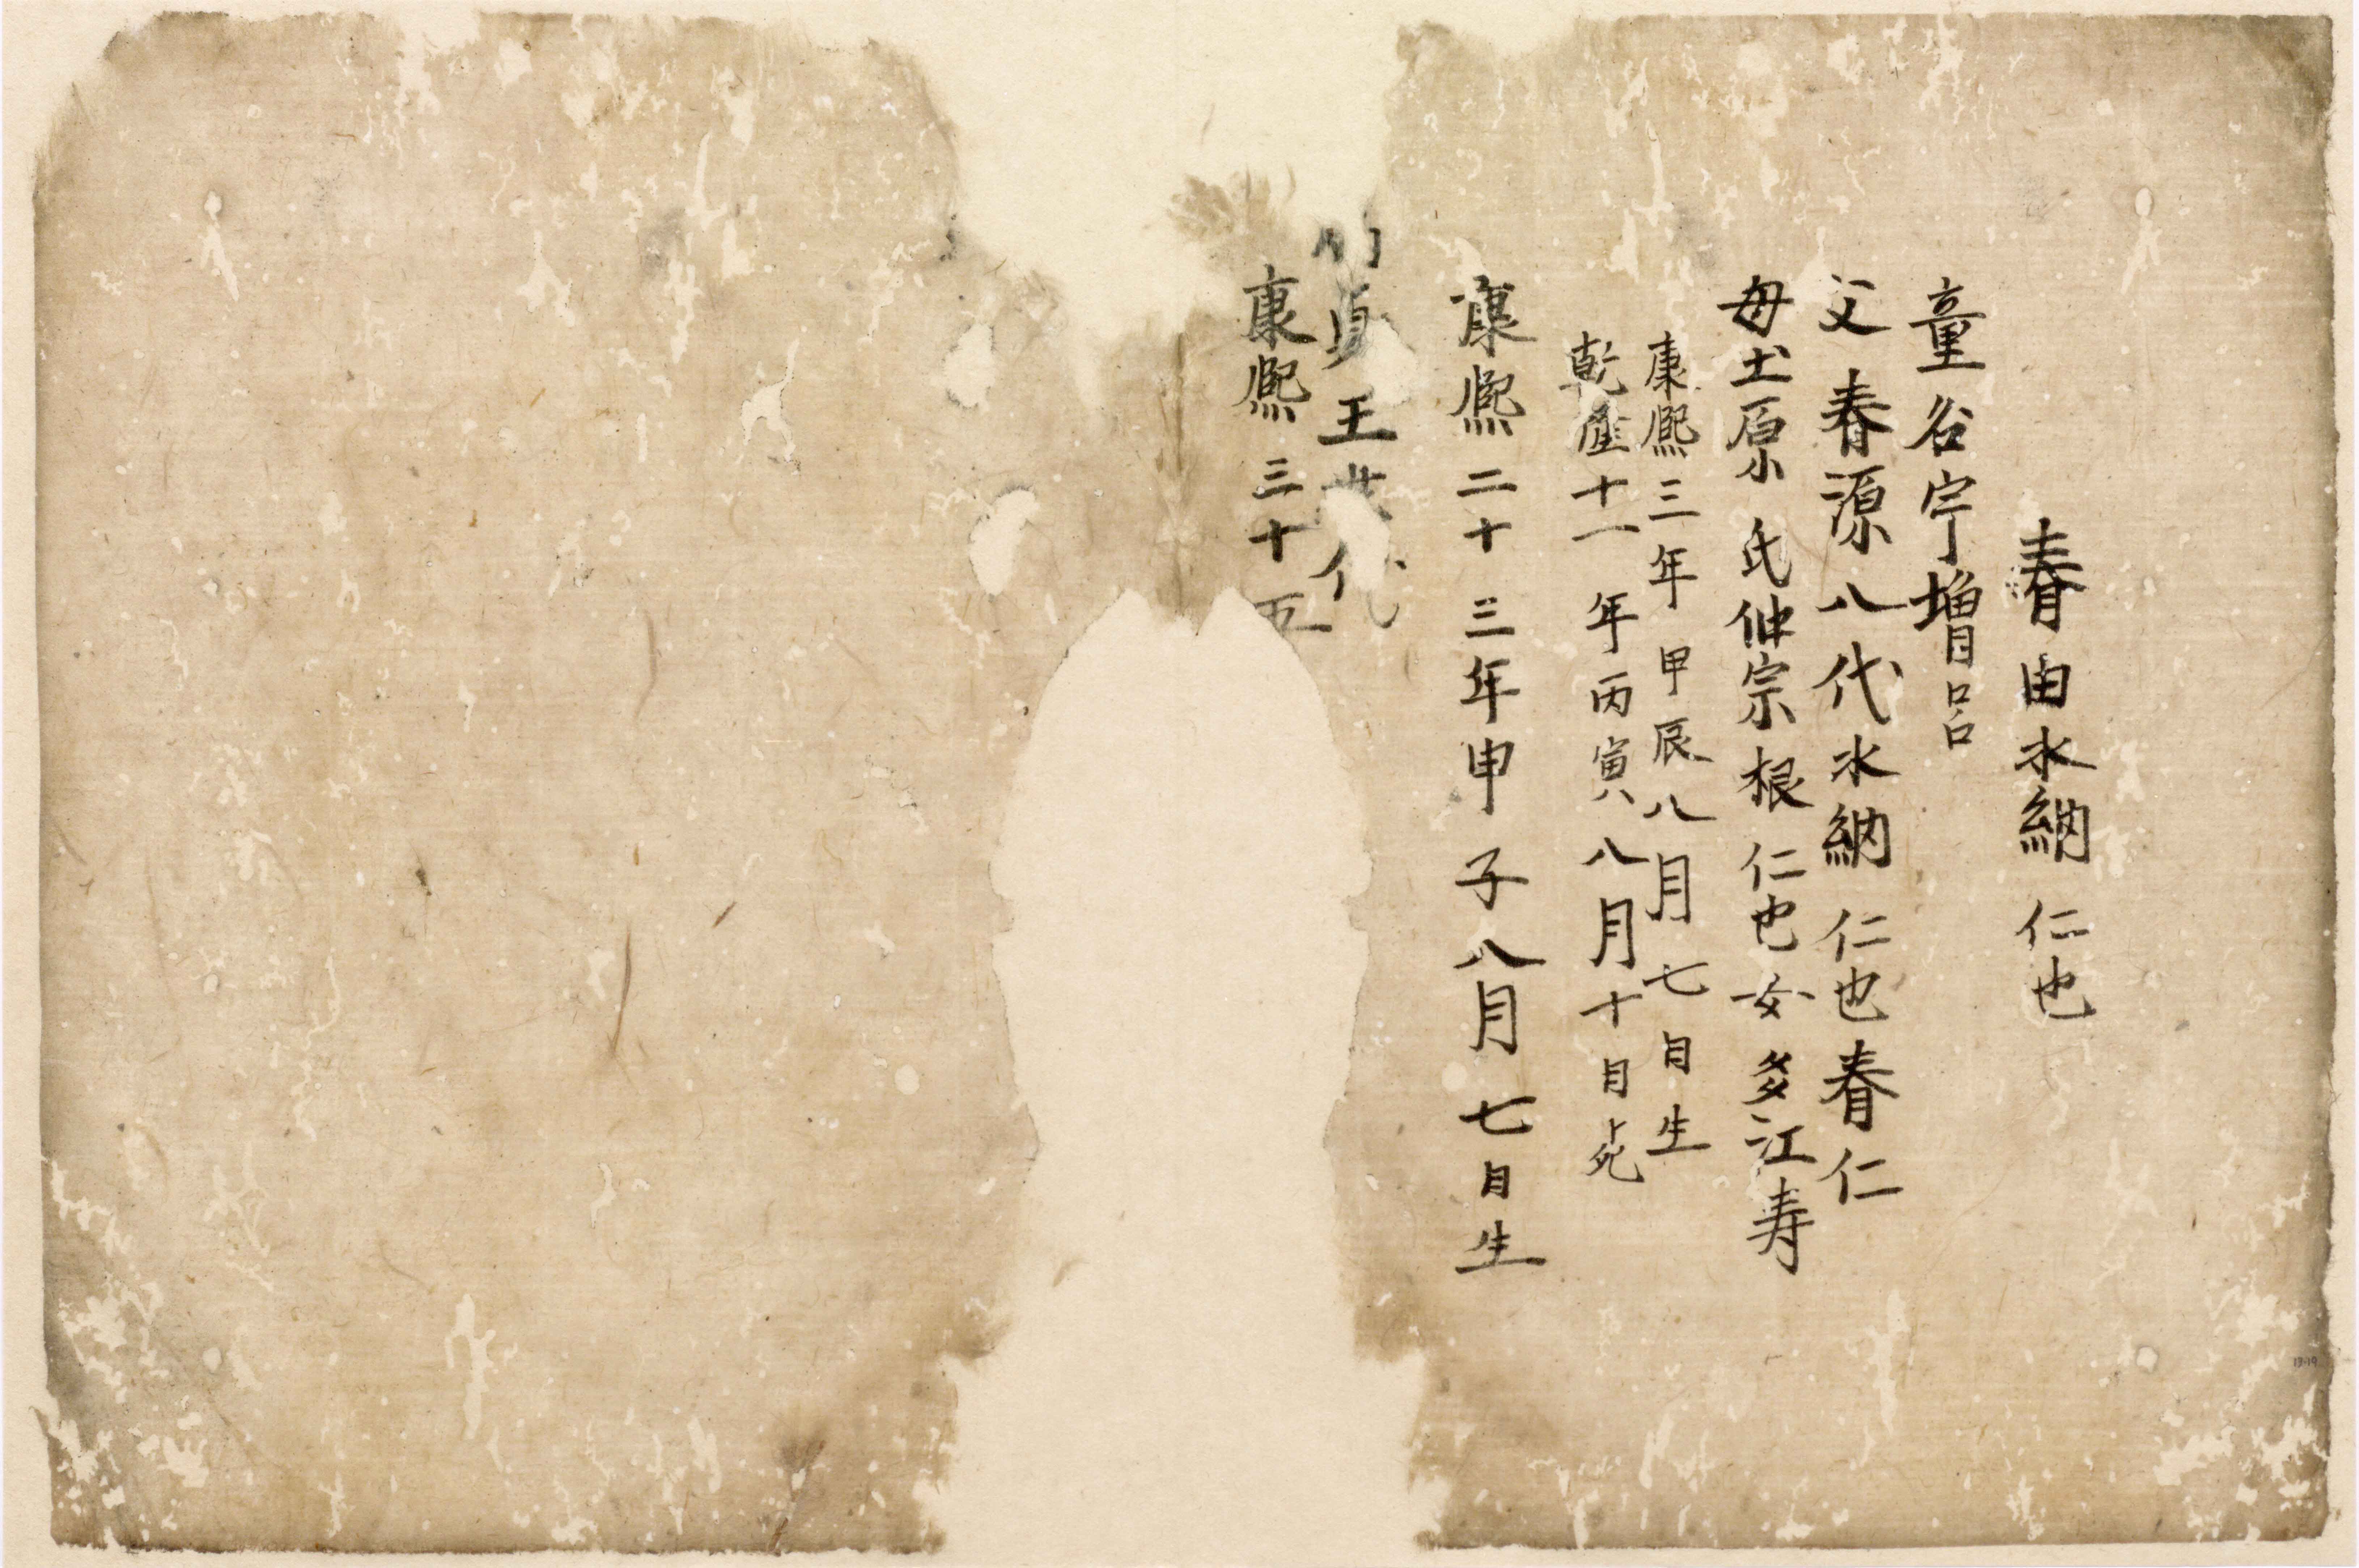 春由水納 仁也
童名宇増呂
父 春源八代水納 仁也春仁
母士原氏仲宗根 仁也女多江寿
康熙三年甲辰八月七日生
乾隆十一年丙寅八月十日死
康熙二十三年甲子八月七日生
真王 代
康熙三十五
13-19